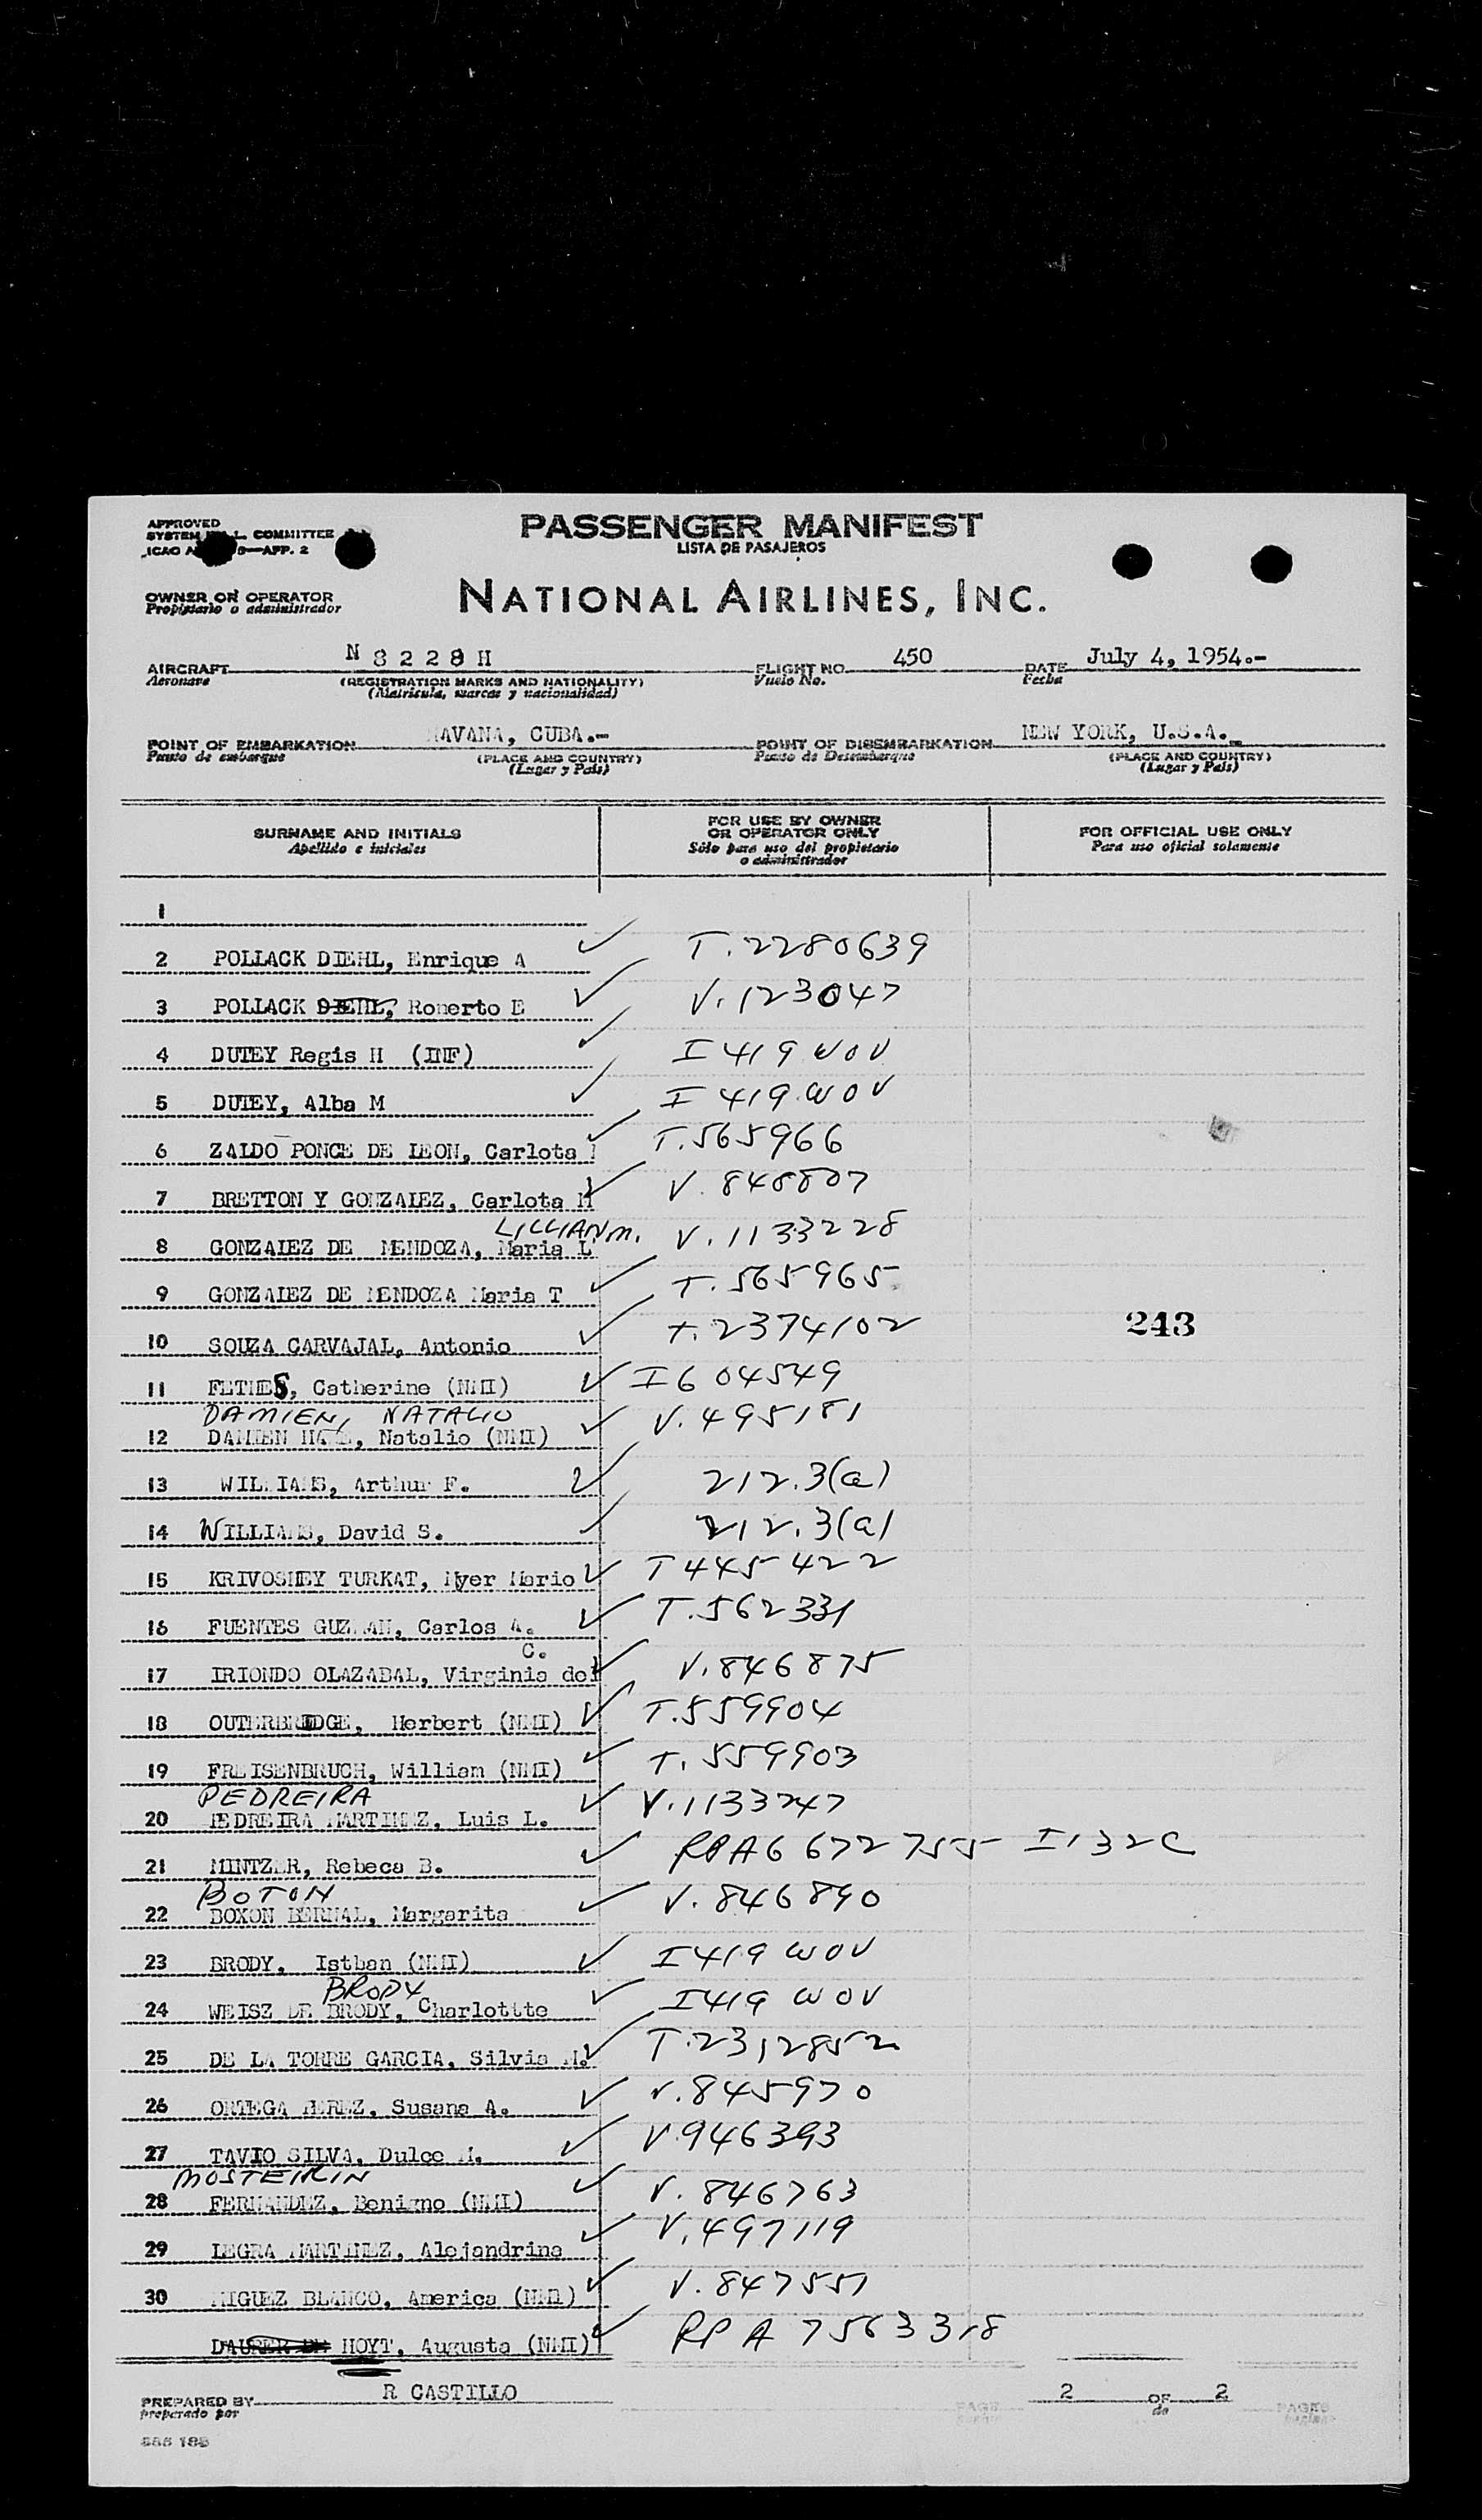 APPROVED
SYSTEM COMMITTEE
ICAO APP. 2
PASSENGER MANIFEST
LISTA DE PASAJEROS
OWNER OR OPERATOR
Propietario o administrador
NATIONAL AIRLINES, INC.
AIRCRAFT N 8228H FLIGHT NO. 450 DATE July 4, 1954.-
Aeronave (REGISTRATION MARKS AND NATIONALITY) Vuelo No. Fecha
(Matrícula, marcas y nacionalidad)
POINT OF EMBARKATION AVANA, CUBA.- POINT OF DISEMBARKATION NEW YORK, U.S.A.
Punto de embarque (PLACE AND COUNTRY) Punto de Desembarque (PLACE AND COUNTRY)
(Lugar y País) (Lugar y País)
SURNAME AND INITIALS FOR USE BY OWNER OR OPERATOR ONLY FOR OFFICIAL USE ONLY
Apellido e iniciales Sólo para uso del propietario o administrador Para uso oficial solamente
1
2 POLLACK DIEHL, Enrique A T.2280639
3 POLLACK DIEHL, Roberto E V.123047
4 DUTEY Regis H (INF) I 419 WOV
5 DUTEY, Alba M I 419 WOV
6 ZALDO PONCE DE LEON, Carlota T.565966
7 BRETTON Y GONZALEZ, Carlota M V. 848807
LILLIAN M.
8 GONZALEZ DE MENDOZA, Maria L V.1133228
9 GONZALEZ DE MENDOZA Maria T T.565965
10 SOUZA CARVAJAL, Antonio T.2374102
243
11 FETHES, Catherine (NMI) I604549
DAMIEN, NATALIO
12 DAMIEN, Natalio (NMI) V.495181
13 WILLIAMS, Arthur F. 212.3(a)
14 WILLIAMS, David S. 212.3(a)
15 KRIVOSHEY TURKAT, Myer Mario T445422
16 FUENTES GUZMAN, Carlos A. T.562331
C.
17 IRIONDO OLAZABAL, Virginia del V.846875
18 OUTERBRIDGE, Herbert (NMI) T.559904
19 FREISENBRUCH, William (NMI) T.559903
PEDREIRA
20 PEDREIRA MARTINEZ, Luis L. V.1133247
21 MINTZER, Rebeca B. RPA6 672 755 I132C
BOTON
22 BOXON BERNAL, Margarita V.846890
23 BRODY, Istban (NMI) I419 WOV
BRODY
24 WEISZ DE BRODY, Charlottte I419 WOV
25 DE LA TORRE GARCIA, Silvia M. T.2312852
26 ORTEGA PEREZ, Susana A. V.845970
27 TAVIO SILVA, Dulce M. V946393
MOSTEIRIN
28 FERNANDEZ, Benigno (NMI) V.846763
29 LEGRA MARTINEZ, Alejandrina V.497119
30 MIGUEZ BLANCO, America (NMI) V.847551
HOYT, Augusta (NMI) RP A 7563318
PREPARED BY R CASTILLO PAGE 2 OF 2 PAGES
preparado por de